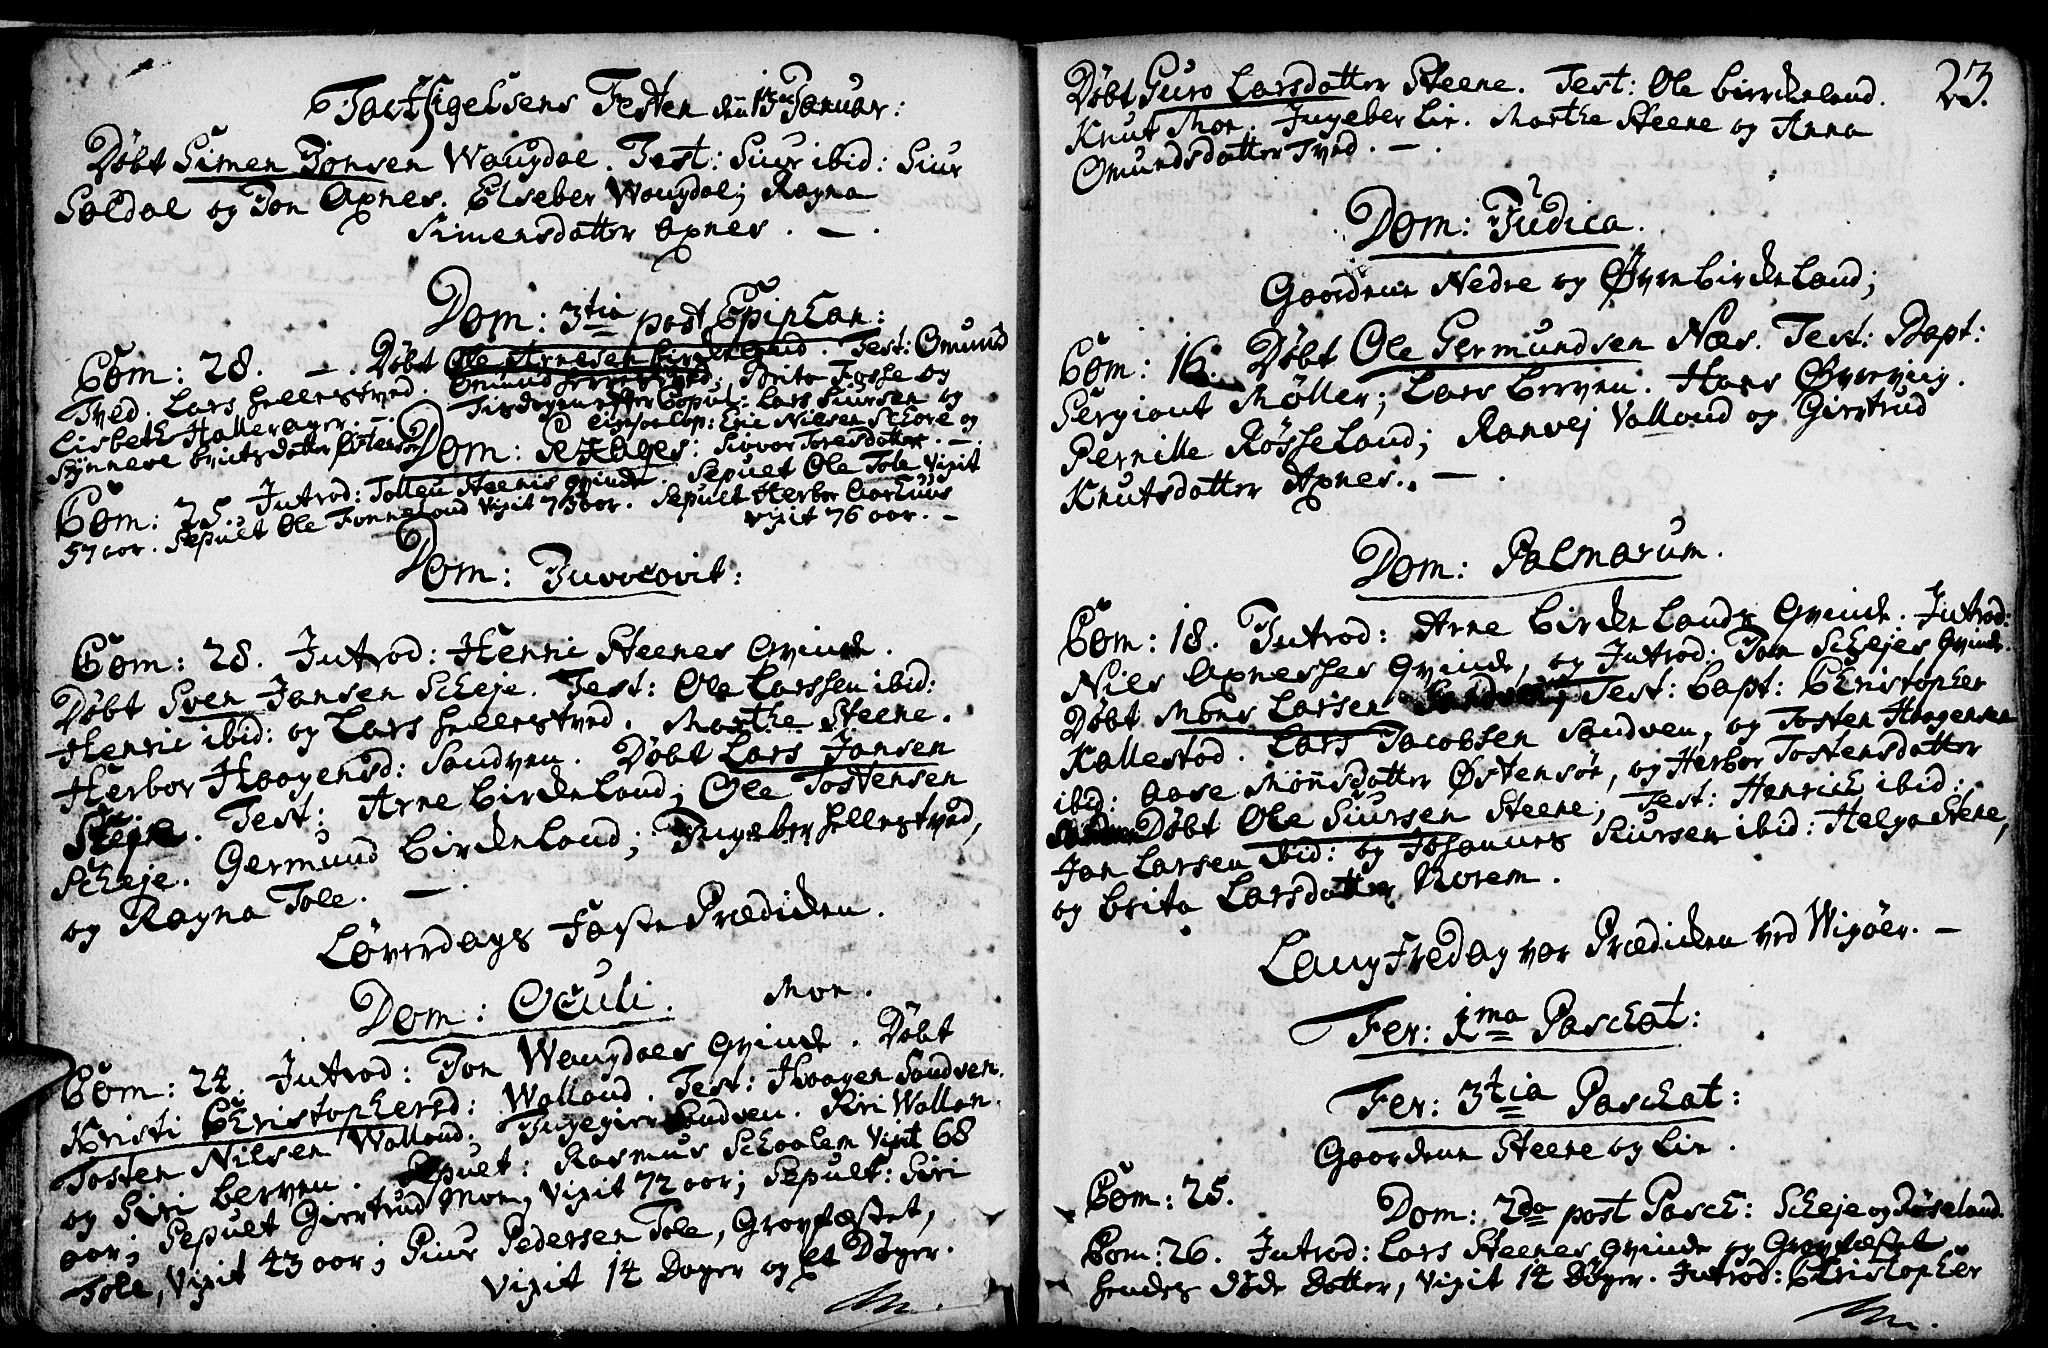 Tacksigelsens Festen den 15 Januar:
Døbt Simen Jonsen Wangdal. Test: Siur ibid: Siur
Soldal og Jon Axnes. Elseber Wangdal; Ragna
Simensdatter Axnes. —.
Dom: 3tia post Epiphan:
Com: 28. —. Døbt Ole Arnesen Birckeland. Test: Omund
Tved. Lars Hellestved. Brita Fosse og
Lisbeth Hallerager. —. Tisdagen efter Copul: Lars Siursen og
Synneve Eric Nielsen Schore og
Dom: Siovor Toresdatter. —.
Com: 25. Introd: Steenes Qvinde. Sepult Ole Tole vixit
57 aar. Sepult Ole Tonneland vixit 73 aar. Sepult Herbor Aarhuus
vixit 76 aar. —
Dom: Invocavit:
Com: 28. Introd: Henric Steenes Qvinde.
Døbt Sven Jansen Scheje. Test: Ole Larssen ibid:
Henric ibid: og Lars Hellestved. Marthe Steene.
Herbor Haagensd: Sandven. Døbt Lars Jansen
Scheje. Test: Arne Birckeland; Ole Tostensen
Scheje. Germund Birckeland; Ingeber Hellestved,
og Ragna Tole. —.
Løverdags Faste Prædicken.
Dom: Oculi. Moe.
Com: 24. Introd: Jon Wangdales Qvinde. Døbt
Kristi Christophersd: Walland. Test: Haagen Sandven.
Tosten Nilsen Walland. Ingegier Sandven. Siri Wallan.
og Siri Berven. Sepult: Rasmus Schaalem vixit 68
aar; Sepult Giertrud Moe, vixit 72 aar; Sepult: Siri
Tole, vixit 43 aar; Siur Pedersen Tole, Gravfæstet,
vixit 14 Dager og et Døger.
23.
Døbt Guro Larsdatter Steene. Test: Ole Birckeland.
Knut Moe. Ingeber Lie. Marthe Steene og Anna
Omundsdatter Tved. —.
Dom: Judica.
Gaardene Nedre og Øvre Birckeland;
Com: 16. Døbt Ole Germundsen Næs. Test: Bapt:
Sergiant Møller; Lars Berven. Hans Øvreviig.
Pernille Røsseland; Ranvej Valland og Giertrud
Knutsdatter Axnes. —.
Dom: Palmarum.
Com: 18. Introd: Arne Birckelands Qvinde. Introd:
Niels Axnesses Qvinde, og Introd: Jon Schejes Qvinde.
Døbt Mons Larsen Sandven, Test: Capt: Christopher
Kallestad. Lars Jacobsen Sandven, og Tosten Haagensen
ibid: Aase Monsdatter Østensøe, og Herbor Tostensdatter
Døbt Ole Siursen Steene; Test: Henrich ibid:
Jan Larsen ibid: og Johannes Siursen ibid: Helga Stene,
og Brita Larsdatter Norem.
Langfredag var Prædicken ved Wigøer. —
Fer: 1ma Paschat:
Fer: 3tia Paschat:
Gaardene Steene og Lie.
Com: 25.
Dom: 2da post Pasch: Scheje og Røseland.
Com: 26. Introd: Lars Steenes Qvinde og Gravfæstet
hendes døde Datter, vixit 14 Døger. Introd: Christopher